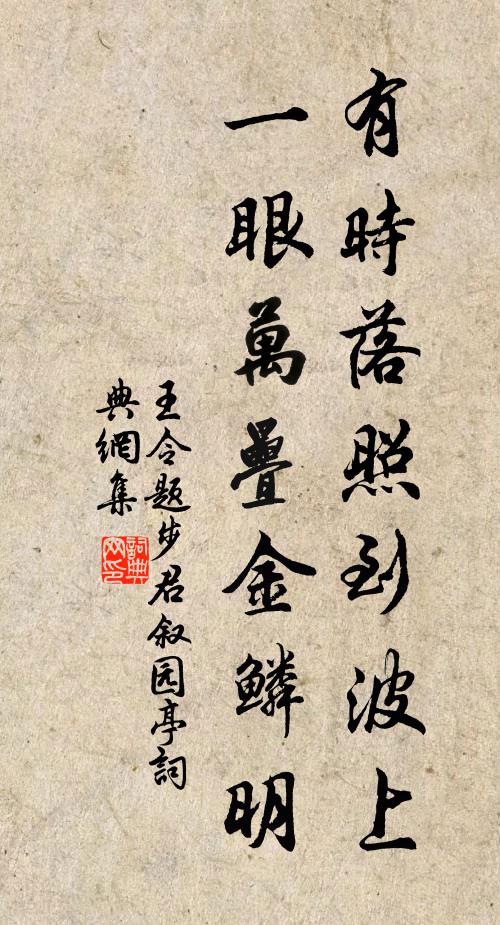 有時落照到波上
一眼萬疊金鳞明
王令题步君叙园亭詞
典網集
詞典
网印